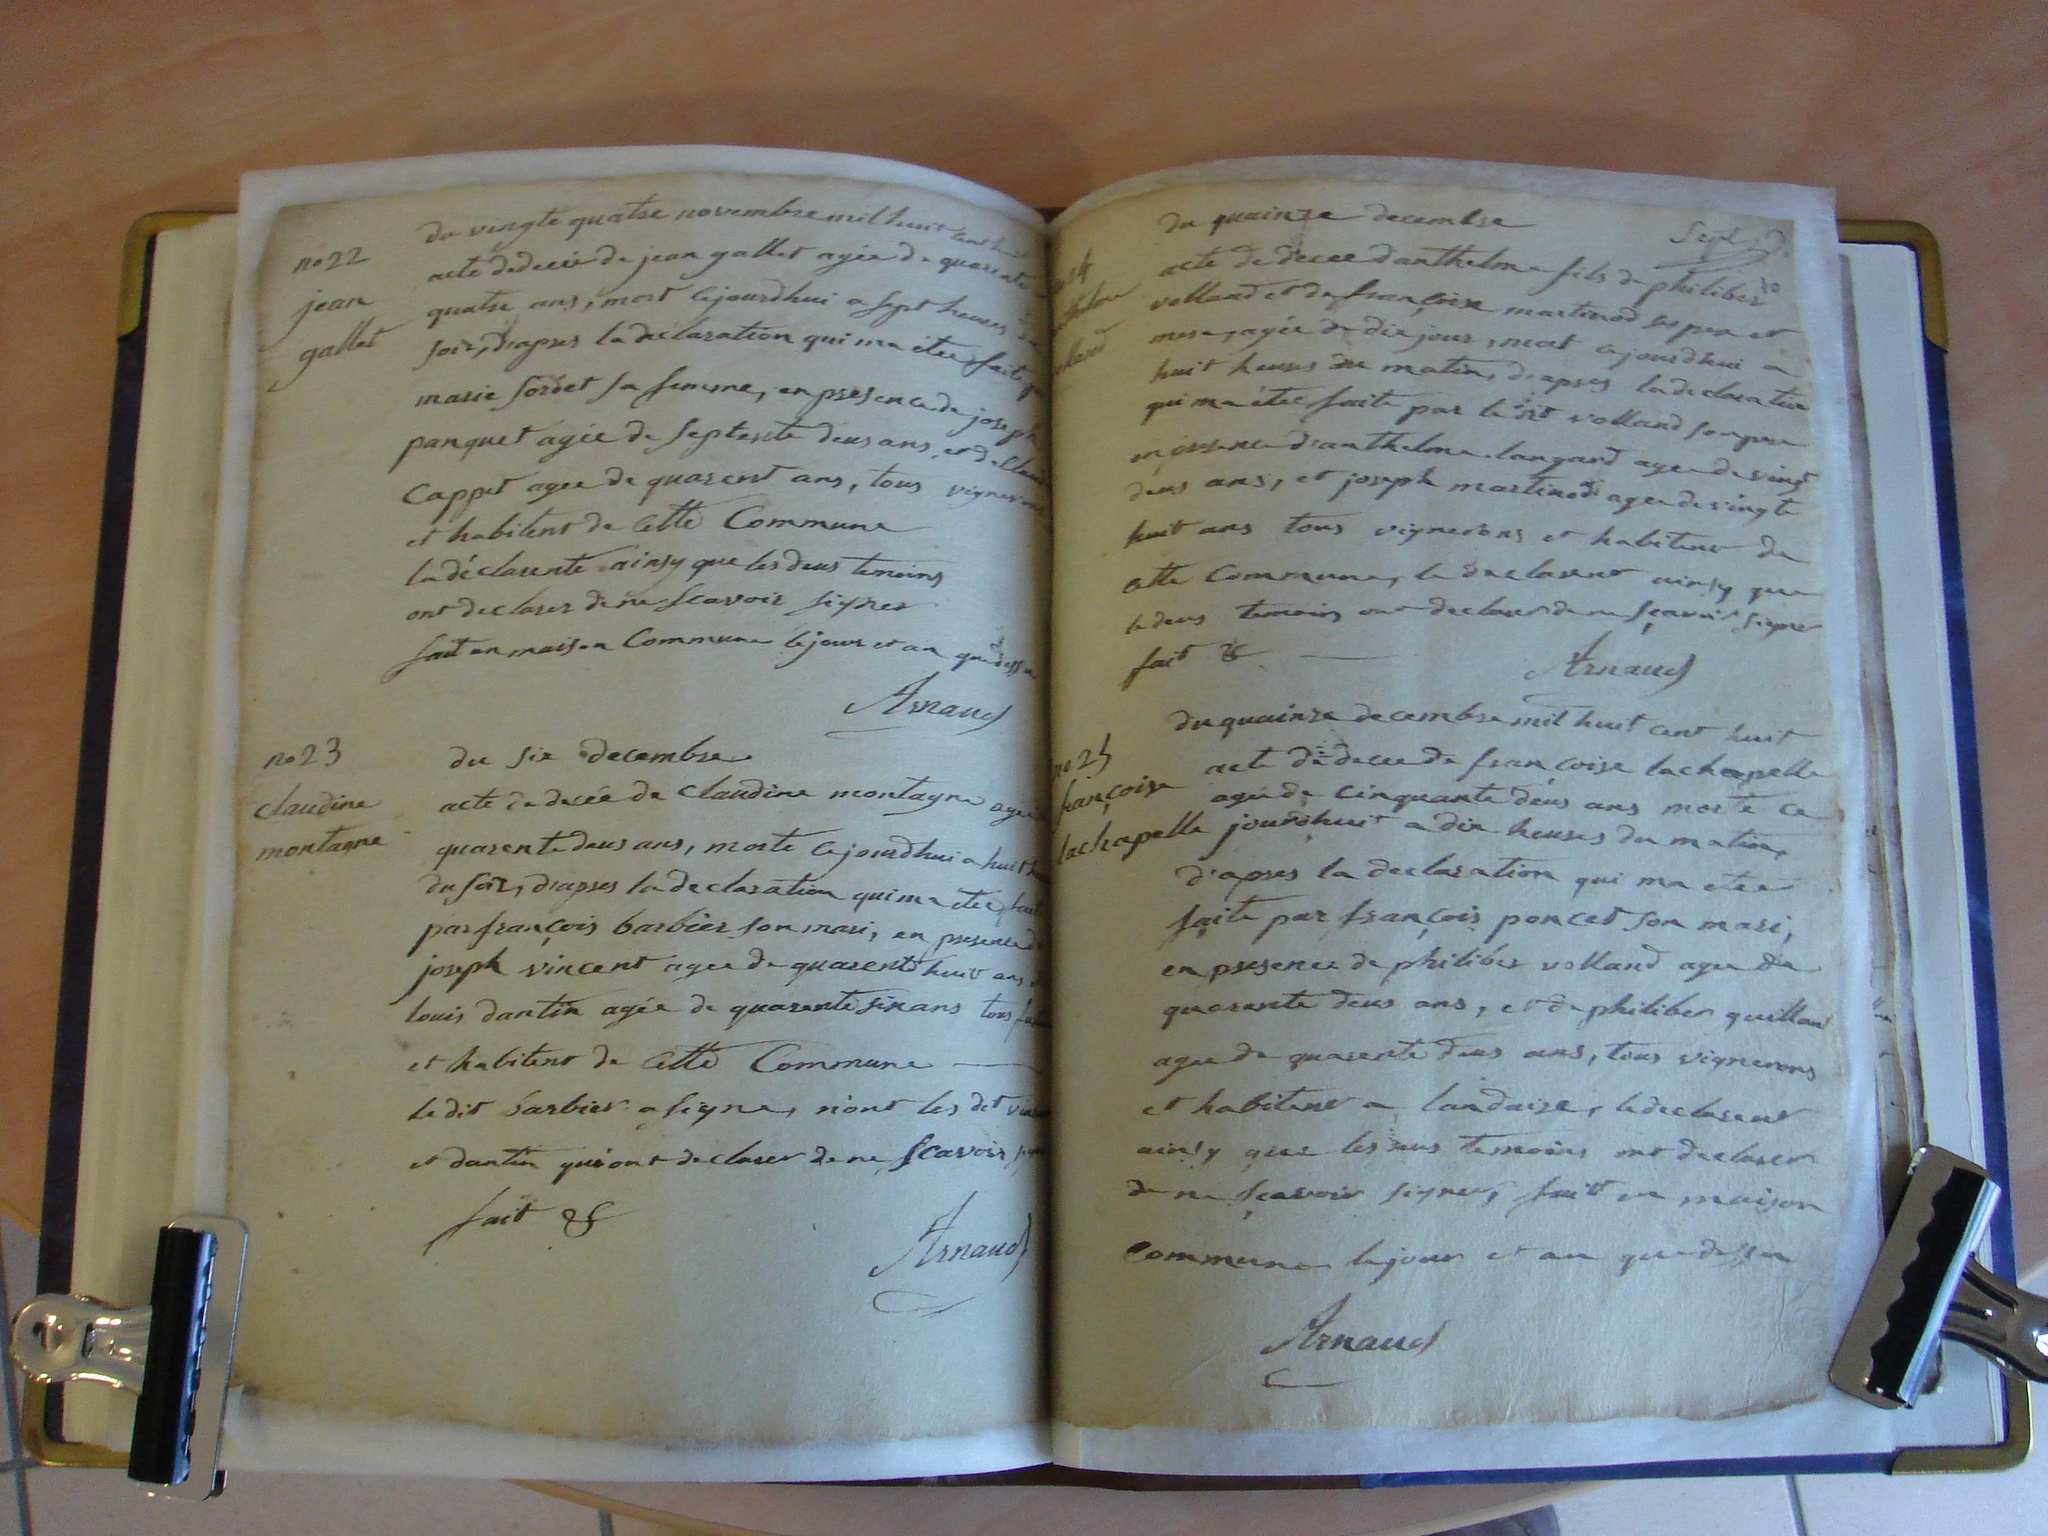 du vingte quatre novembre mil huit cent huit
no 22
jean
gallet
acte dedecée de jean gallet agée de quarente
quatre ans, mort cejourdhui a sept heures du
soir, d'apres la declaration qui ma etee faite
marie sordet sa femme, en presence de joseph
panquet agée de septente deus ans, et de
Cappet agee de quarent ans, tous vignerons
et habitent de Cette Commune
la déclarente ainsy que les deus temoins
ont declarer de ne scavoir signer
fait en maison Commune lejour et an que dessu
Arnaud
no 23
claudine
montagne
du six decembre
acte de decée de Claudine montagne agée
quarente deus ans, morte cejourdhui a huit
du soir, d'apres la declaration qui ma etee faite
par françois barbier son mari, en presence de
joseph vincent agee de quarente huit ans
louis dantin agée de quarente six ans tous
et habitent de Cette Commune
le dit barbier a signe, n'ont les dit
et dantin qui ont declarer de ne scavoir
fait &
Arnaud
du quainze decembre
Sept
acte de decee d'anthelme fils de philiber
volland et de françoise martinod ses pere et
mere, agée de dix jour, mort cejourdhui a
huit heures du matin, d'apres la declaration
qui ma étée faite par le dit volland son pere
en presence d'anthelme langard agee de vingt
deus ans, et joseph martinod agee de vingte
huit ans tous vignerons et habitent de
Cette Commune, le declarent ainsy que
le deus temoin ont declarer de ne sçavoir signer
fait &
Arnaud
no 25
françoise
lachapelle
du quainze decembre mil huit cent huit
acte de decee de françoise lachapelle
agée de cinquante déus ans morte ce
jourdhuit a dix heures du matin,
d'apres la declaration qui ma etee
faite par françois poncet son mari,
en presence de philiber volland agee de
quarente deus ans, et de philiber quilland
agee de quarente deus ans, tous vignerons
et habitent a landaize, le declarent
ainsy que les deus temoins ont declarer
de ne sçavoir signer, fait en maison
Commune lejour et an que dessu
Arnaud